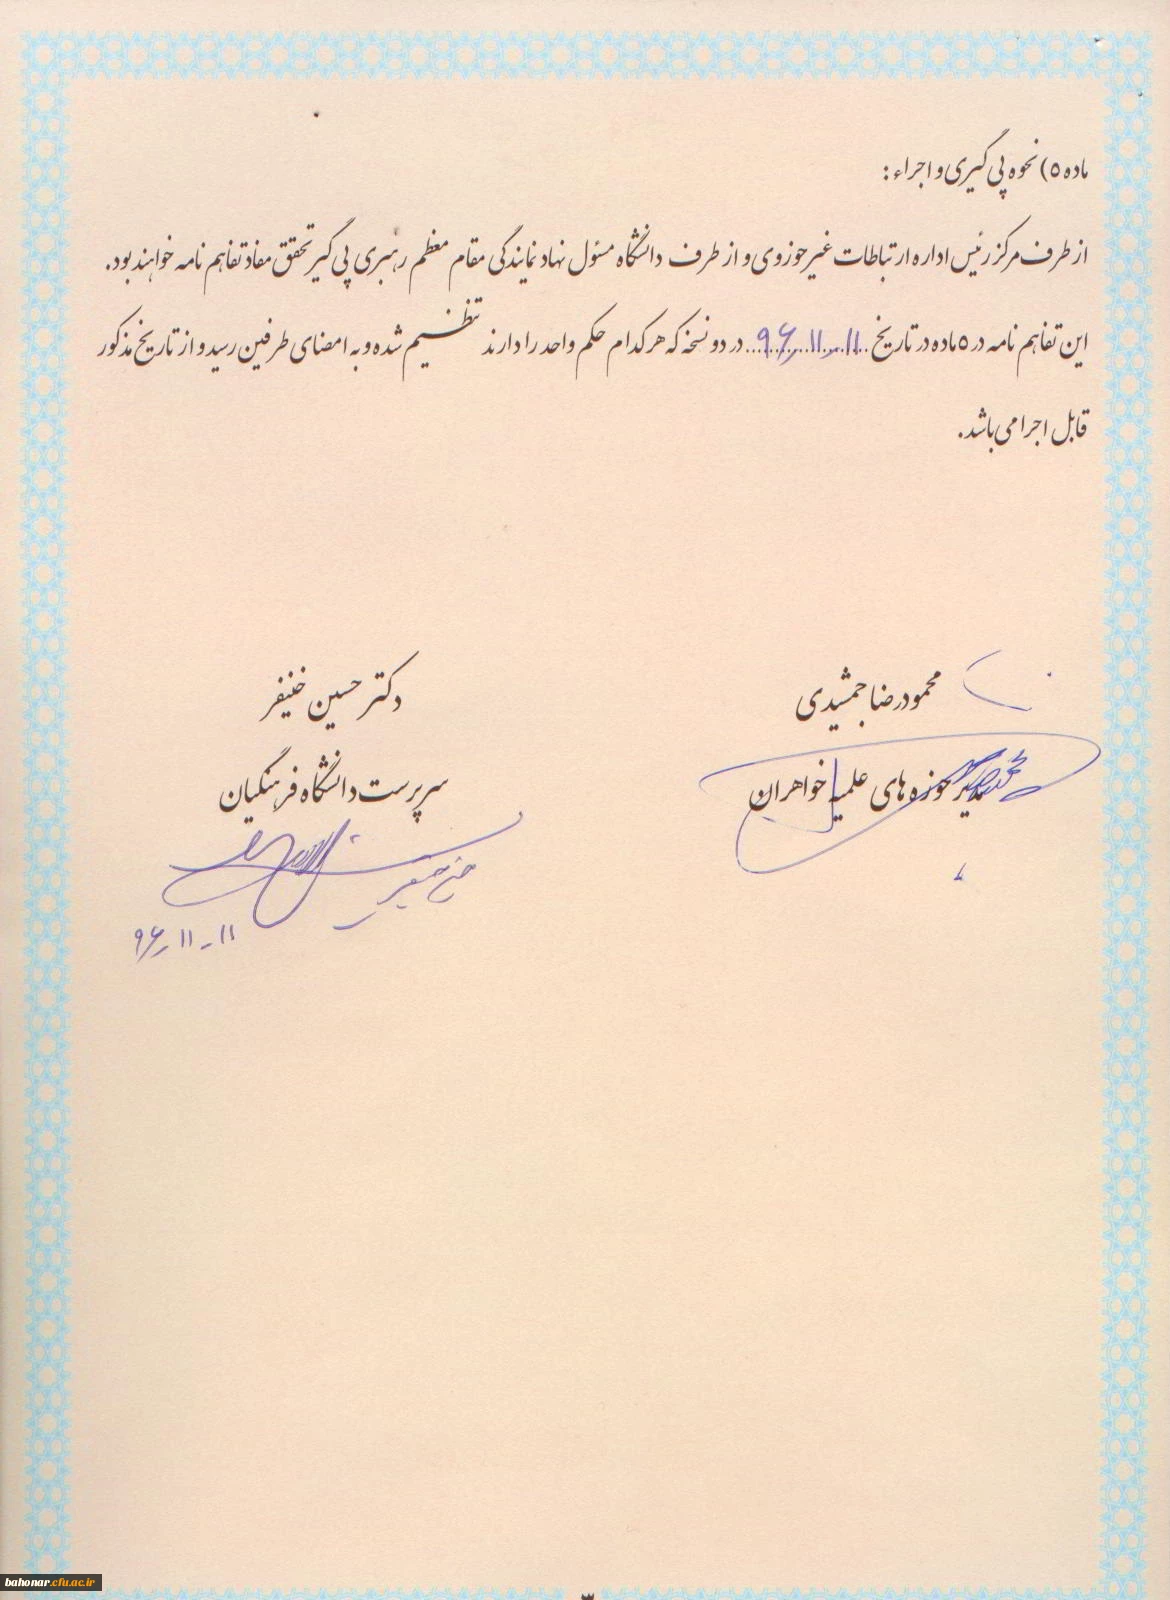 ماده ۵) نحوه پی گیری و اجراء :
از طرف مرکز رئیس اداره ارتباطات غیر حوزوی و از طرف دانشگاه مسئول نهاد نمایندگی مقام معظم رهبری پی گیر تحقق مفاد تفاهم نامه خواهند بود.
این تفاهم نامه در ۵ ماده در تاریخ ۹۶ر۱۱ر۱۱ در دو نسخه که هر کدام حکم واحد را دارند تنظیم شده و به امضای طرفین رسید و از تاریخ مذکور
قابل اجرا می باشد.
محمود رضا جمشیدی
مدیر حوزه های علمیه خواهران
دکتر حسین خنیفر
سرپرست دانشگاه فرهنگیان
۹۶ر۱۱ر۱۱
bahonar.cfu.ac.ir
۳